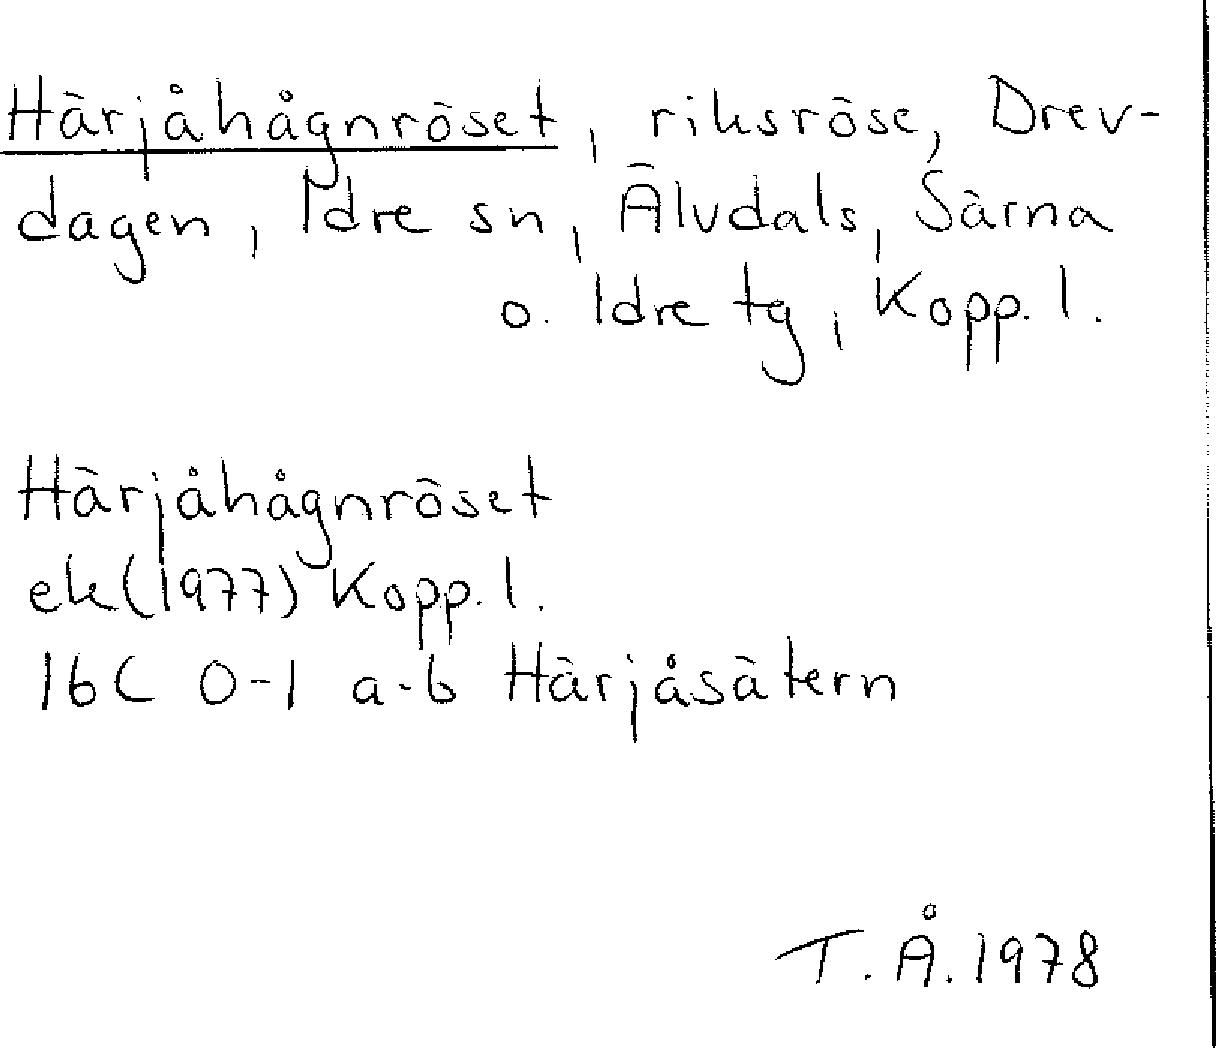 Härjåhågnröset, riksröse, Drev-
dagen, Idre sn, Älvdals, Särna
o. Idre tg, Kopp. l.
Härjåhågnröset
ek (1977) Kopp. l.
16C 0-1 a-b Härjåsätern
T. Å. 1978